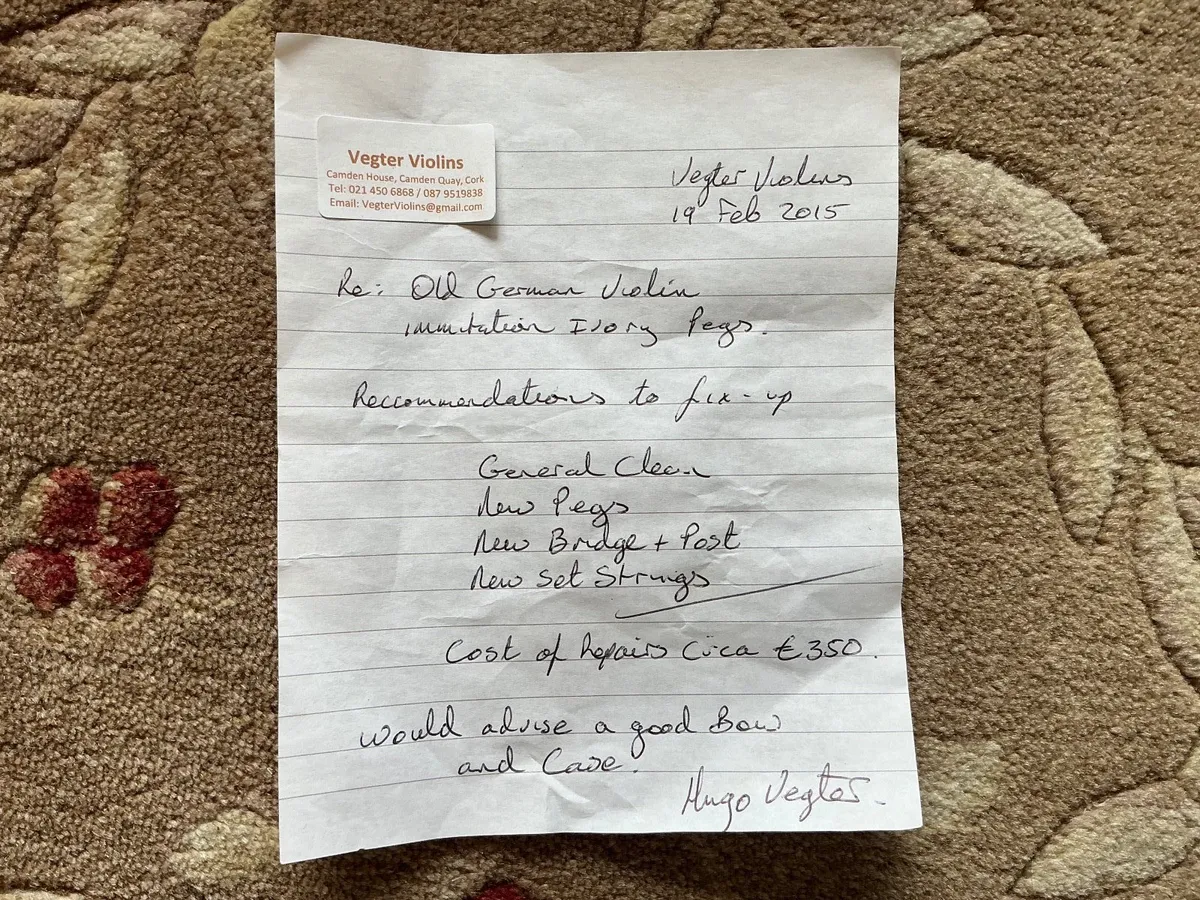 Vegter Violins
Camden House, Camden Quay, Cork
Tel: 021 450 6868 / 087 9519838
Email: VegterViolins@gmail.com
Vegter Violins
19 Feb 2015
Re: Old German Violin
immitation Ivory Pegs.
Reccommendations to fix-up
General Clean
New Pegs
New Bridge + Post
New Set Strings
Cost of Repairs Circa €350.
would advise a good Bow
and Case.
Hugo Vegter.